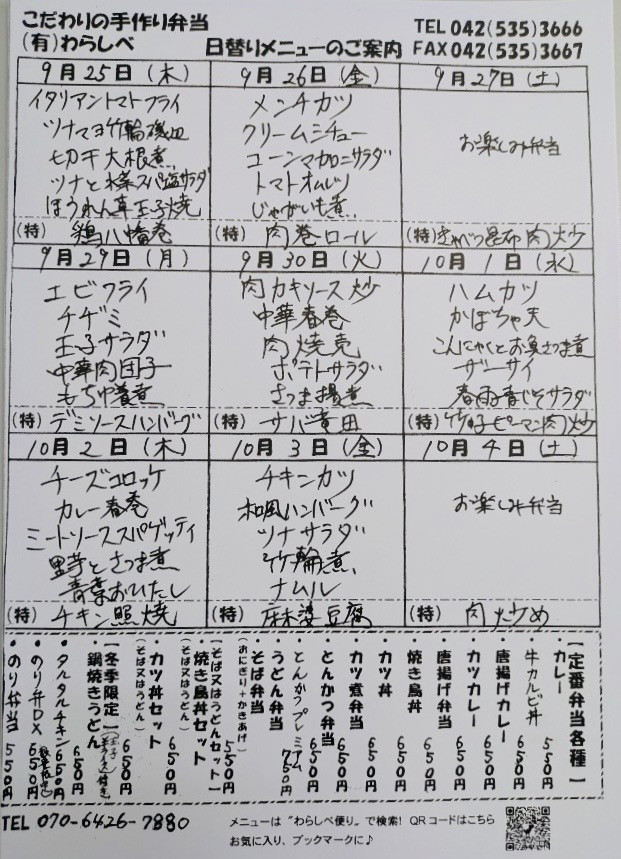 こだわりの手作り弁当
(有)わらしべ
日替りメニューのご案内
TEL 042(535)3666
FAX 042(535)3667
9月25日(木)
イタリアントマトフライ
ツナマヨ竹輪磯辺
切干大根煮
ツナと水菜スパ塩サラダ
ほうれん草玉子焼
(特) 鶏八幡巻
9月26日(金)
メンチカツ
クリームシチュー
コーンマカロニサラダ
トマトオムレツ
じゃがいも煮
(特) 肉巻ロール
9月27日(土)
お楽しみ弁当
(特) きゃべつ昆布肉炒
9月29日(月)
エビフライ
チヂミ
玉子サラダ
中華肉団子
もち巾着煮
(特) デミソースハンバーグ
9月30日(火)
肉カキソース炒
中華春巻
肉焼売
ポテトサラダ
さつま揚煮
(特) サバ竜田
10月1日(水)
ハムカツ
かぼちゃ天
こんにゃくとお魚さつま煮
ザーサイ
春雨青じそサラダ
(特) 竹の子ピーマン肉炒
10月2日(木)
チーズコロッケ
カレー春巻
ミートソーススパゲッティ
里芋とさつま煮
青菜おひたし
(特) チキン照焼
10月3日(金)
チキンカツ
和風ハンバーグ
ツナサラダ
竹輪煮
ナムル
(特) 麻婆豆腐
10月4日(土)
お楽しみ弁当
(特) 肉炒め
【定番弁当各種】
・カレー 550円
牛カルビ丼 650円
・唐揚げカレー 650円
・カツカレー 650円
・唐揚げ弁当 650円
・焼き鳥丼 650円
・カツ丼 650円
・カツ煮弁当 650円
・とんかつ弁当 650円
・とんかつプレミアム 750円
・うどん弁当
・そば弁当 550円
(おにぎり+かきあげ)
【そば又はうどんセット】
・焼き鳥丼セット 650円
(そば又はうどん)
・カツ丼セット 650円
(そば又はうどん)
【冬季限定】
鍋焼きうどん 650円
・タルタルチキン 650円
・のり弁DX 650円
・のり弁当 550円
TEL 070-6426-7880
メニューは"わらしべ便り"で検索! QRコードはこちら
お気に入り、ブックマークに♪